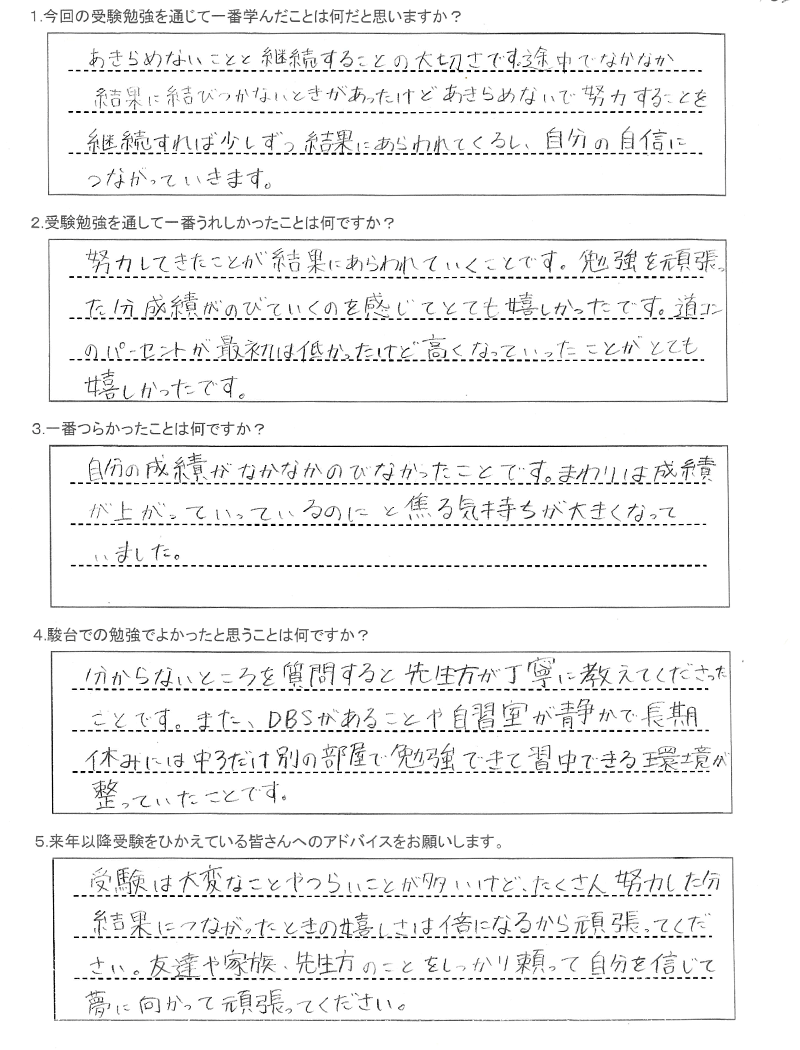 1.今回の受験勉強を通じて一番学んだことは何だと思いますか？
あきらめないことと継続することの大切さです。途中でなかなか
結果に結びつかないときがあったけどあきらめないで努力することを
継続すれば少しずつ結果にあらわれてくるし、自分の自信に
つながっていきます。
2.受験勉強を通して一番うれしかったことは何ですか？
努力してきたことが結果にあらわれていくことです。勉強を頑張っ
た分成績がのびていくのを感じてとても嬉しかったです。道コン
のパーセントが最初は低かったけど高くなっていったことがとても
嬉しかったです。
3.一番つらかったことは何ですか？
自分の成績がなかなかのびなかったことです。まわりは成績
が上がっていっているのにと焦る気持ちが大きくなって
いました。
4.駿台での勉強でよかったと思うことは何ですか？
分からないところを質問すると先生方が丁寧に教えてくださった
ことです。また、DBSがあることや自習室が静かで長期
休みには中3だけ別の部屋で勉強できて習中できる環境が
整っていたことです。
5.来年以降受験をひかえている皆さんへのアドバイスをお願いします。
受験は大変なことやつらいことが多いけど、たくさん努力した分
結果につながったときの嬉しさは倍になるから頑張ってくだ
さい。友達や家族、先生方のことをしっかり頼って自分を信じて
夢に向かって頑張ってください。